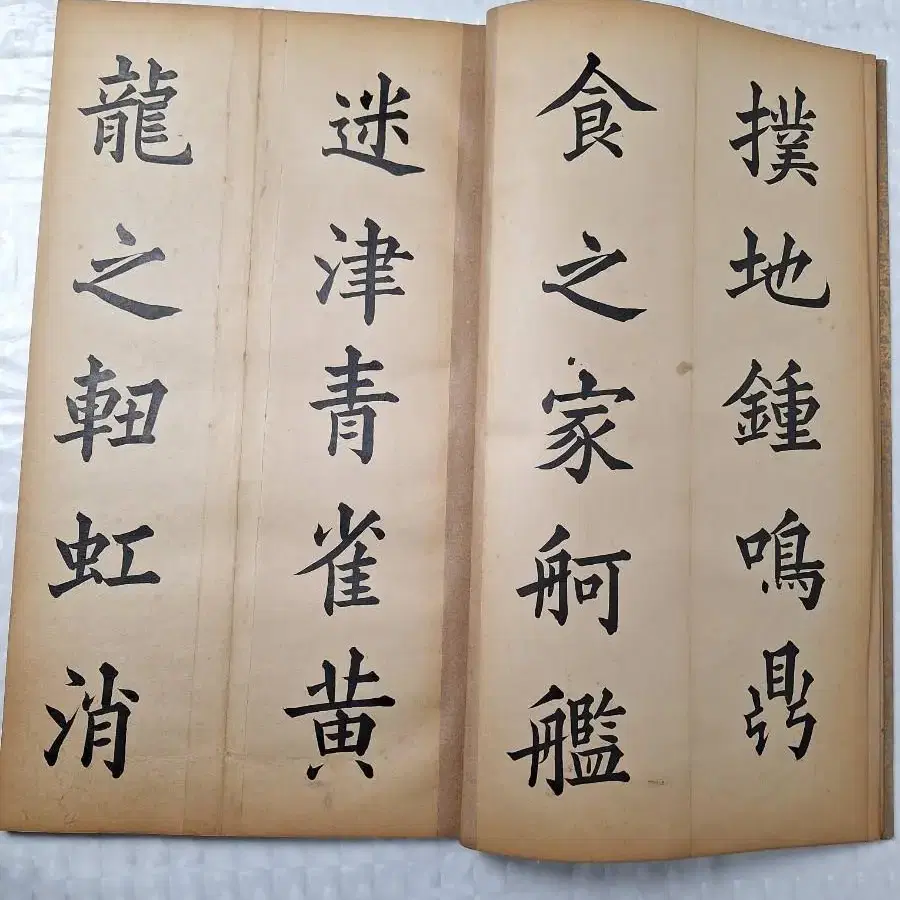 撲地鍾鳴鼎
食之家舸艦
迷津青雀黄
龍之軸虹消